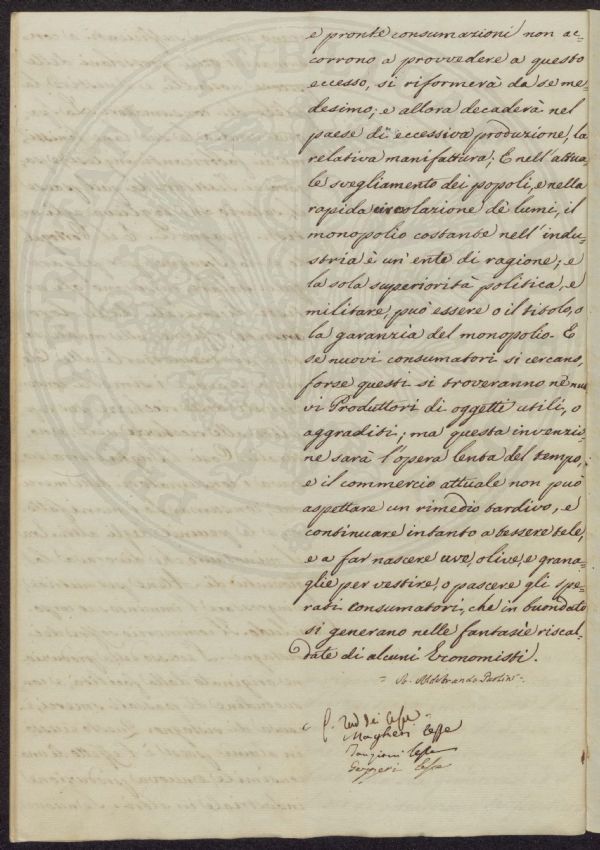 e pronte consumazioni non ac-
corrono a provvedere a questo
eccesso, si riformerà da se me-
desimo; e allora decaderà nel
paese di eccessiva produzione, la
relativa manifattura; E nell'attua-
le svegliamento dei popoli, e nella
rapida circolazione dè lumi, il
monopolio costante nell'indu-
stria è un'ente di ragione; e
la sola superiorità politica, e
militare, può essere o il titolo, o
la garanzia del monopolio. E
se nuovi consumatori si cercano,
forse questi si troveranno nè nuo
vi Produttori di oggetti utili, o
aggraditi; ma questa invenzio-
ne sarà l'opera lenta del tempo,
e il commercio attuale non può
aspettare un rimedio tardivo, e
continuare intanto a tessere tele,
e a far nascere uve, olive, e grana-
glie per vestire, o pascere gli spe-
rati consumatori, che in buondato
si generano nelle fantasie riscal-
date di alcuni Economisti.
= Aldobrando Paolini =
lesse
Magheri lesse
lesse
lesse